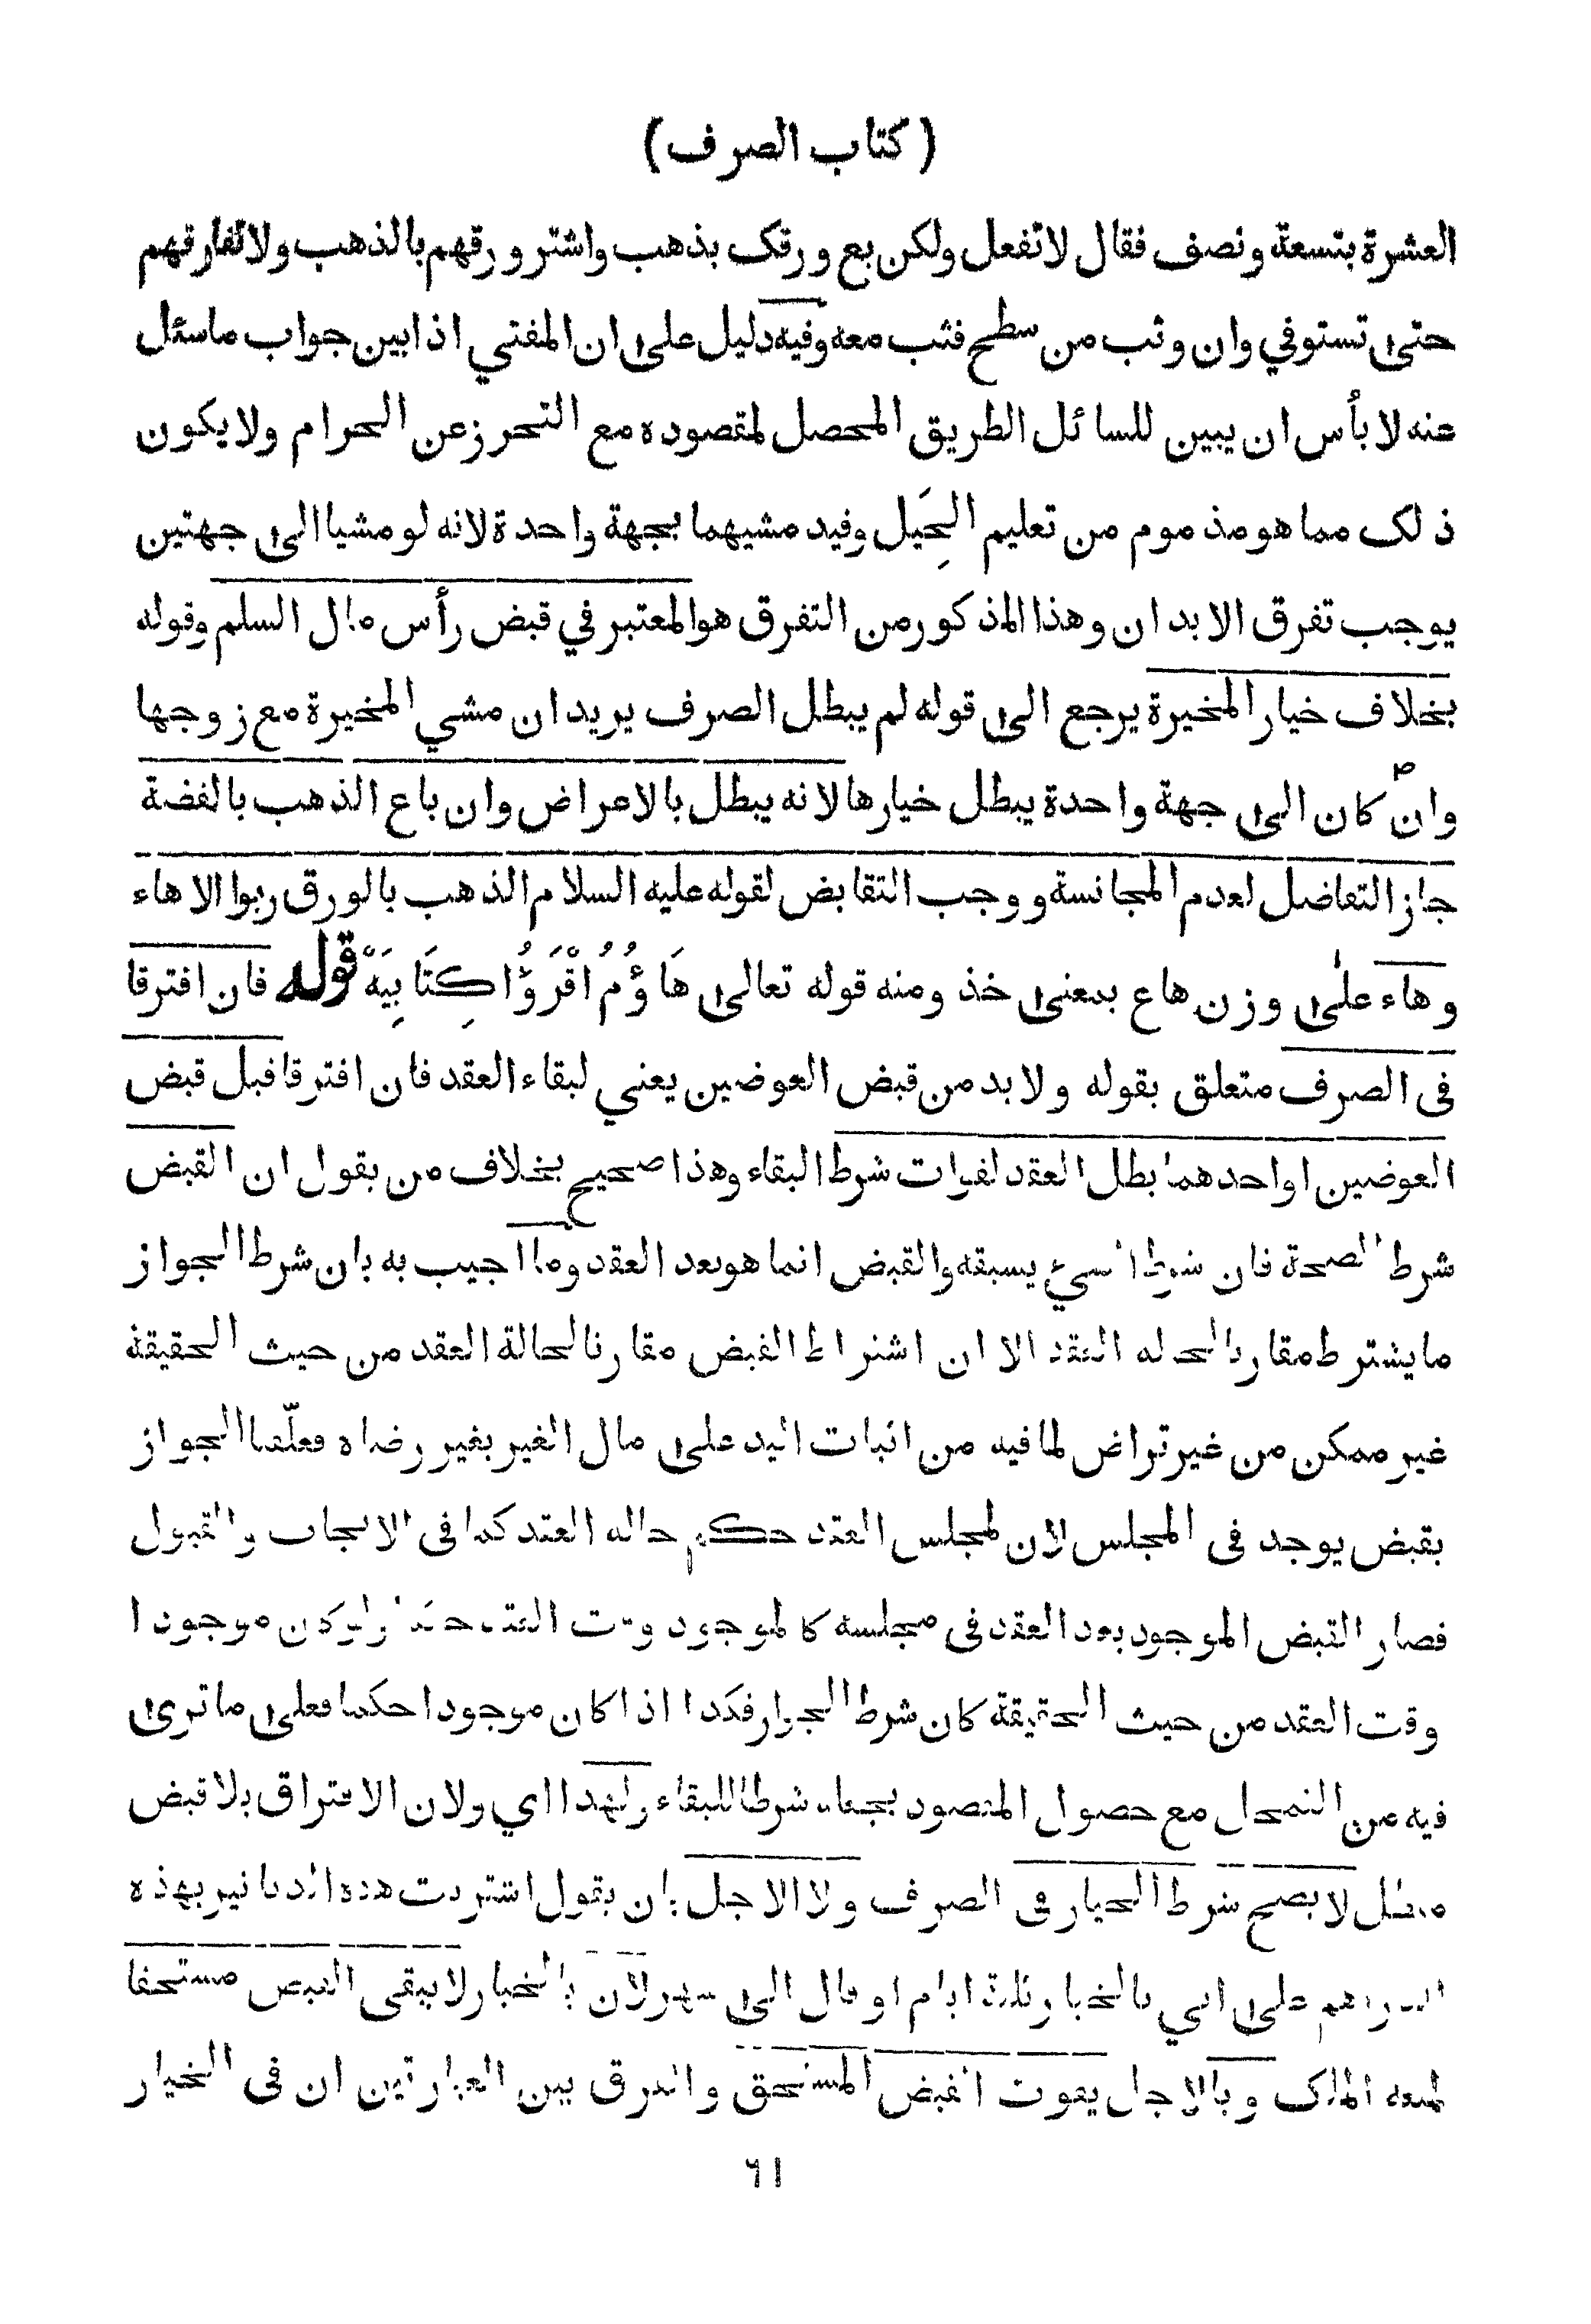 ( كتاب الصرف )
العشرة بتسعة ونصف فقال لا تفعل ولكن بع ورقك بذهب واشتر ورقهم بالذهب ولا تفارقهم
حتى تستوفي وان وثب من سطح فثب معه وفيه دليل على ان المفتي اذا بين جواب ما سئل
عنه لا بأس ان يبين للسائل الطريق المحصل لمقصوده مع التحرز عن الحرام ولا يكون
ذلك مما هو مذموم من تعليم الحِيَل وفيد مشيهما بجهة واحدة لانه لو مشيا الى جهتين
يوجب تفرق الابدان وهذا المذكور من التفرق هو المعتبر في قبض رأس مال السلم وقوله
بخلاف خيار المخيرة يرجع الى قوله لم يبطل الصرف يريد ان مشي المخيرة مع زوجها
وان كان الى جهة واحدة يبطل خيارها لانه يبطل بالاعراض وان باع الذهب بالفضة
جاز التفاضل لعدم المجانسة ووجب التقابض لقوله عليه السلام الذهب بالورق ربوا الا هاء
وهاء على وزن هاع بمعنى خذ ومنه قوله تعالى هَاؤُمُ اقْرَؤُا كِتَابِيَهْ قوله فان افترقا
في الصرف متعلق بقوله ولا بد من قبض العوضين يعني لبقاء العقد فان افترقا فبل قبض
العوضين او احدهما بطل العقد لفوات شرط البقاء وهذا صحيح بخلاف من يقول ان القبض
شرط الصحة فان شرط الشيء يسبقه والقبض انما هو بعد العقد وما اجيب به بان شرط الجواز
ما يشترط مقارنا لحالة العقد الا ان اشتراط القبض مقارنا لحالة العقد من حيث الحقيقة
غير ممكن من غير تراض لما فيه من اثبات اليد على مال الغير بغير رضاه فعلّقنا الجواز
بقبض يوجد في المجلس لان لمجلس العقد حكم حالة العقد كما في الايجاب والقبول
فصار القبض الموجود بعد العقد في مجلسه كالموجود وقت العقد حكما ولو كان موجودا
وقت العقد من حيث الحقيقة كان شرط الجواز فكذا اذا كان موجودا حكما فعلى ما ترى
فيه من التمحل مع حصول المقصود بجعله شرطا للبقاء ولهذا اي ولان الافتراق بلا قبض
مبطل لا يصح شرط الخيار في الصرف ولا الاجل بان يقول اشتريت هذه الدنانير بهذه
الدراهم على اني بالخيار ثلثة ايام او قال الى شهر لان بالخيار لا يبقى القبض مستحقا
لمنعه الملك وبالاجل يفوت القبض المستحق والفرق بين العبارتين ان في الخيار
٦١